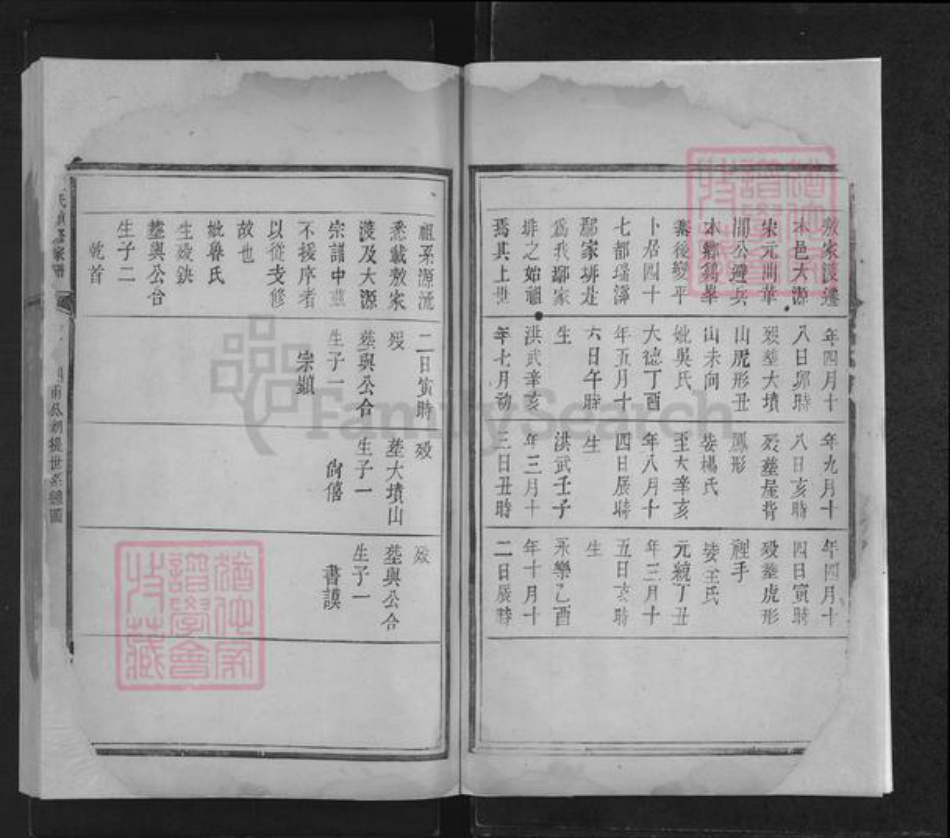 敖家渡遷
本邑大源
宋元間華
閣公避兵
本鄉蔦峯
寨後變平
卜居四十
七都瑤溪
鄢家塅是
為我鄢家
塅之始祖
焉其上世
年四月十
八日卯時
歿塟大墳
山虎形丑
山未向
妣吳氏
大德丁酉
年五月十
六日午時
生
洪武辛亥
年七月初
年九月十
八日亥時
歿塟屋背
鳳形
娶楊氏
至大辛亥
年八月十
四日辰時
生
洪武壬子
年三月十
三日丑時
年四月十
四日寅時
歿塟虎形
裡手
娶王氏
元統丁丑
年三月十
五日亥時
生
永樂乙酉
年十月十
二日辰時
祖系源流
悉載敖家
渡及大源
宗譜中茲
不援序者
以從支修
故也
妣魯氏
生歿缺
塟與公合
生子二
乾首
二日寅時
歿
塟與公合
生子一
宗顯
歿
塟大墳山
生子一
尚僖
歿
塟與公合
生子一
書謨
FamilySearch
猶他家
譜學會
收藏
猶他家
譜學會
收藏